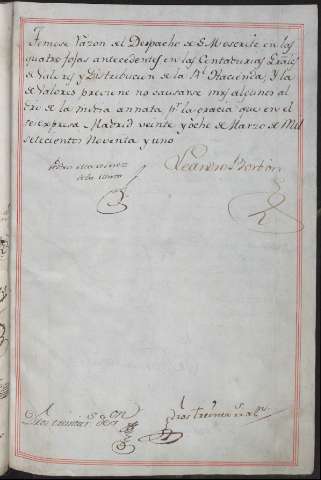 Tomose Razon del Despacho de S.M. escrito en las
quatro fojas antecedentes en las Contadurias Grales
de Valores y Distribucion de la Rl Hacienda Y la
de Valores previene no causarse mrs algunos al
dro de la media annata pr la gracia que en el
se expresa Madrid veinte y ocho de Marzo de Mil
setecientos Noventa y uno
Pedro Martinez
de la
Leandro Borbon